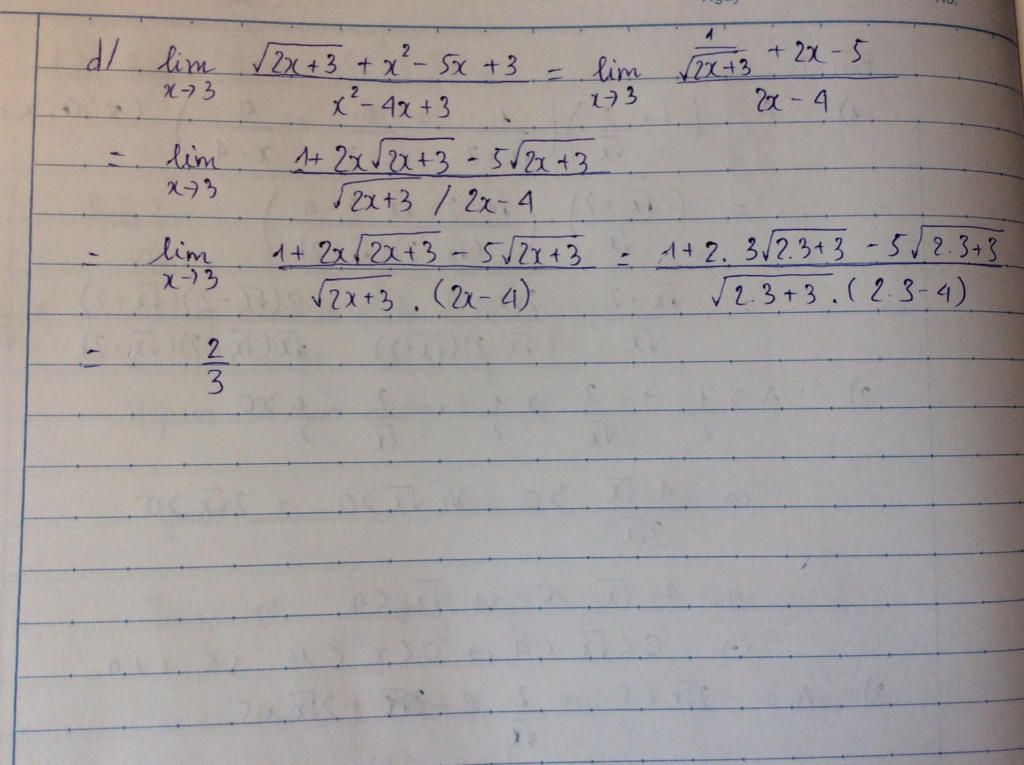 d/ lim x→3 (√(2x+3) + x² - 5x + 3)/(x² - 4x + 3) = lim x→3 (1/√(2x+3) + 2x - 5)/(2x - 4)
= lim x→3 (1 + 2x√(2x+3) - 5√(2x+3))/(√(2x+3) / 2x - 4)
= lim x→3 (1 + 2x√(2x+3) - 5√(2x+3))/(√(2x+3) . (2x - 4)) = (1 + 2. 3√(2.3+3) - 5√(2.3+3))/(√(2.3+3) . (2.3 - 4))
= 2/3